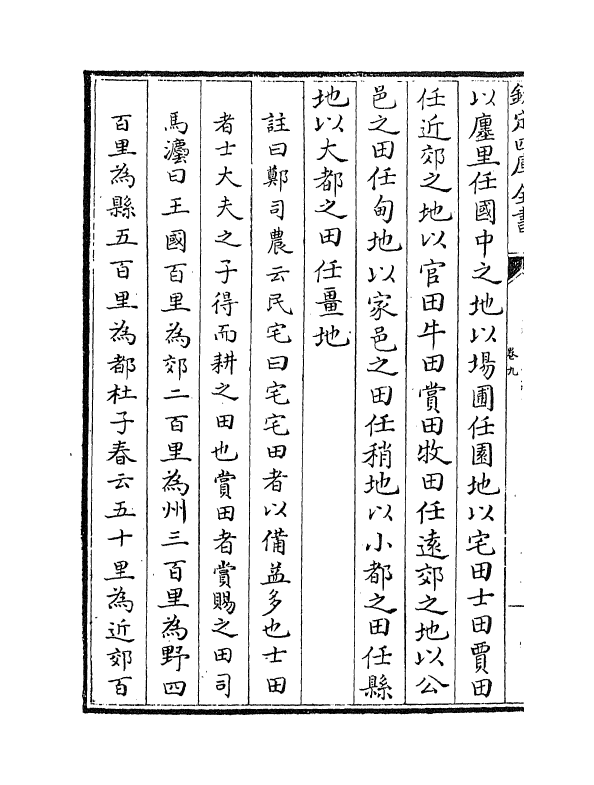 欽定四庫全書
卷九
以廛里任國中之地以場圃任園地以宅田士田賈田
任近郊之地以官田牛田賞田牧田任遠郊之地以公
邑之田任甸地以家邑之田任稍地以小都之田任縣
地以大都之田任畺地
註曰鄭司農云民宅曰宅宅田者以備益多也士田
者士大夫之子得而耕之田也賞田者賞賜之田司
馬灋曰王國百里為郊二百里為州三百里為野四
百里為縣五百里為都杜子春云五十里為近郊百